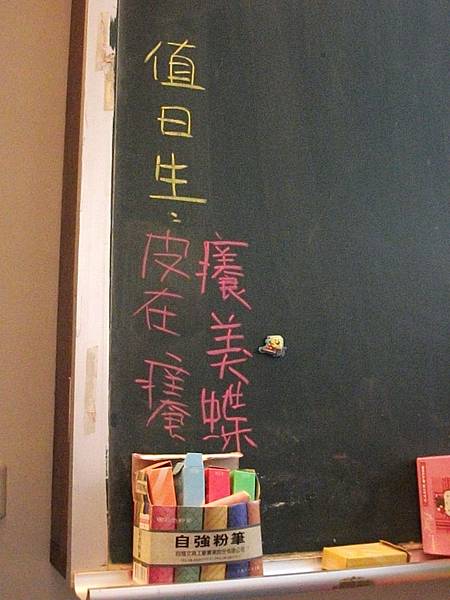 值日生：
皮在癢
癢美蝶
自強粉筆